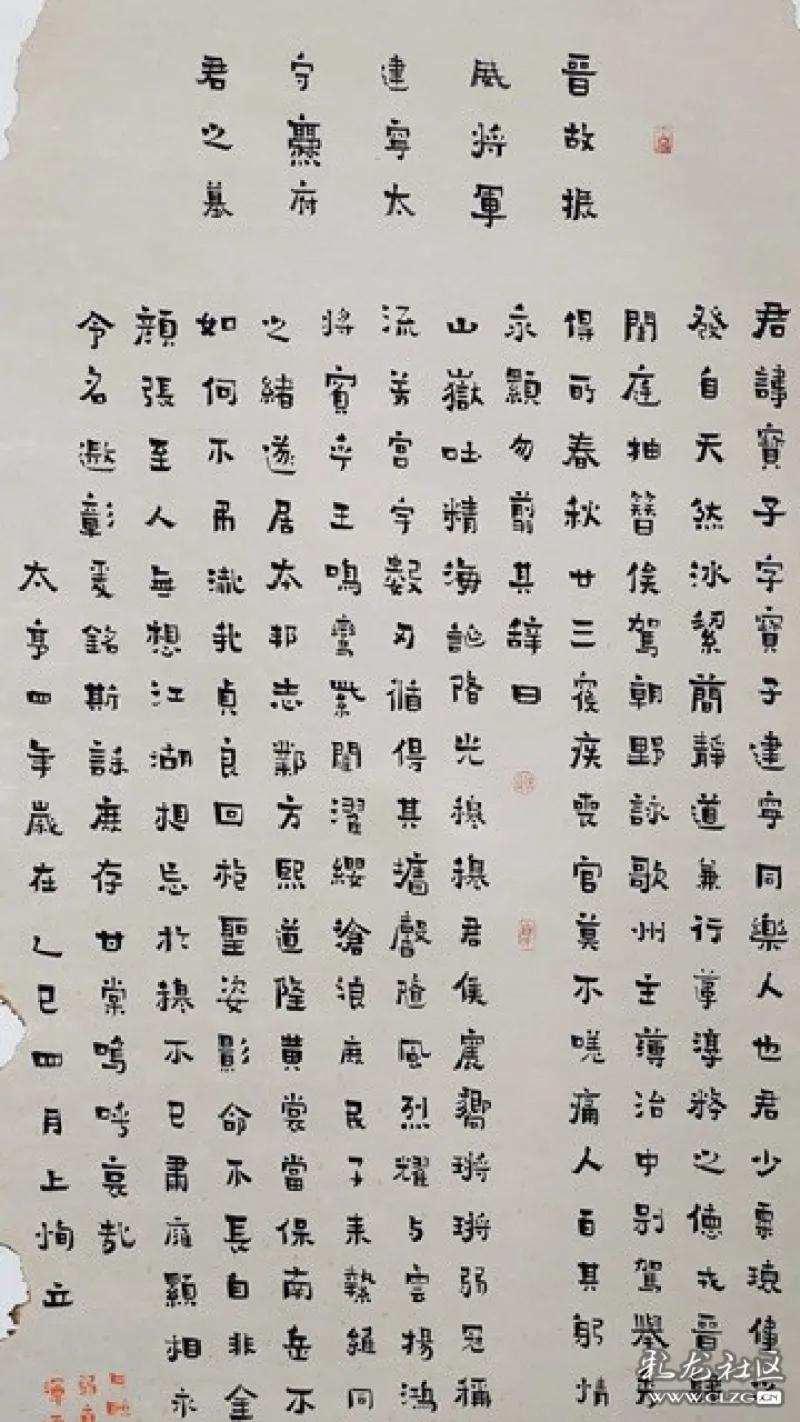 晉故振
威將軍
建寧太
守爨府
君之墓
君諱寶子字寶子建寧同樂人也君少稟瓌偉
發自天然冰絜簡靜道兼行葦淳粹之德戎晉歸
閨庭抽簪俟駕朝野詠歌州主薄治中別駕舉秀
得所春秋廿三寑疾喪官莫不嗟痛人百其躬情
永顯勿翦其辭曰
山嶽吐精海誕陼光穆穆君侯震嚮鏘鏘弱冠稱
流芳宮宇數刃循得其牆馨隨風烈耀与雲揚鴻
將賓乎王鳴鸞紫闥濯纓滄浪庶民子來縶維同
之緒遂居本邦志鄴方熙道隆黄裳當保南岳不
如何不弔殲我貞良回抱聖姿影命不長自非金
顏張至人無想江湖相忘於穆不已肅雍顯相永
令名遬彰爰銘斯誄庶存甘棠嗚呼哀哉
太亨四年歲在乙巳四月上恂立
彩龙社区
WWW.CLZG.CN